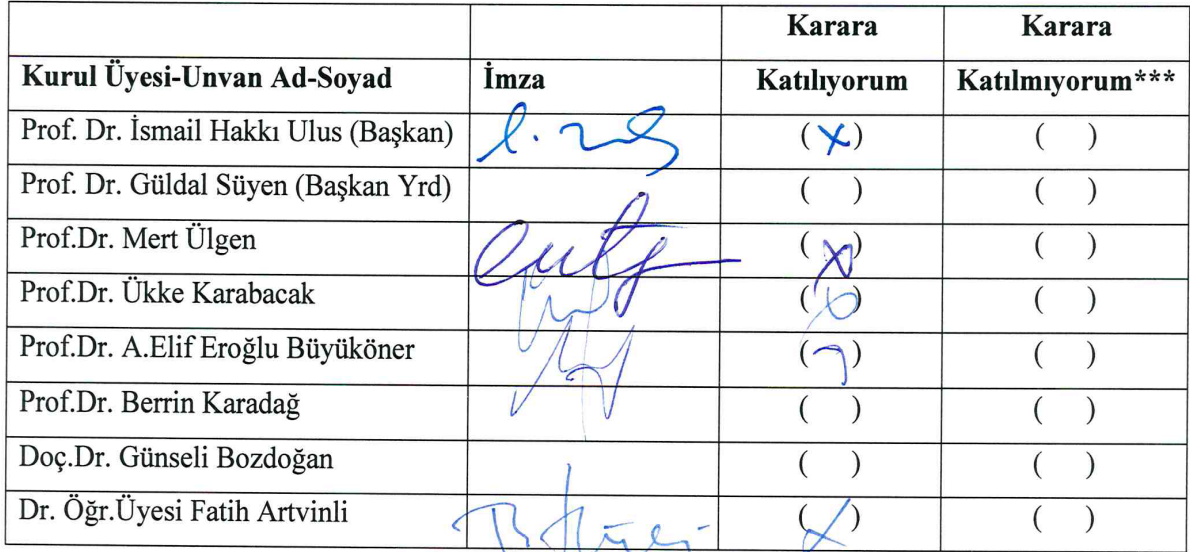 Karara Karara
Kurul Üyesi-Unvan Ad-Soyad İmza Katılıyorum Katılmıyorum***
Prof. Dr. İsmail Hakkı Ulus (Başkan) (X) ( )
Prof. Dr. Güldal Süyen (Başkan Yrd) ( ) ( )
Prof.Dr. Mert Ülgen (X) ( )
Prof.Dr. Ükke Karabacak (X) ( )
Prof.Dr. A.Elif Eroğlu Büyüköner ( ) ( )
Prof.Dr. Berrin Karadağ ( ) ( )
Doç.Dr. Günseli Bozdoğan ( ) ( )
Dr. Öğr.Üyesi Fatih Artvinli (X) ( )